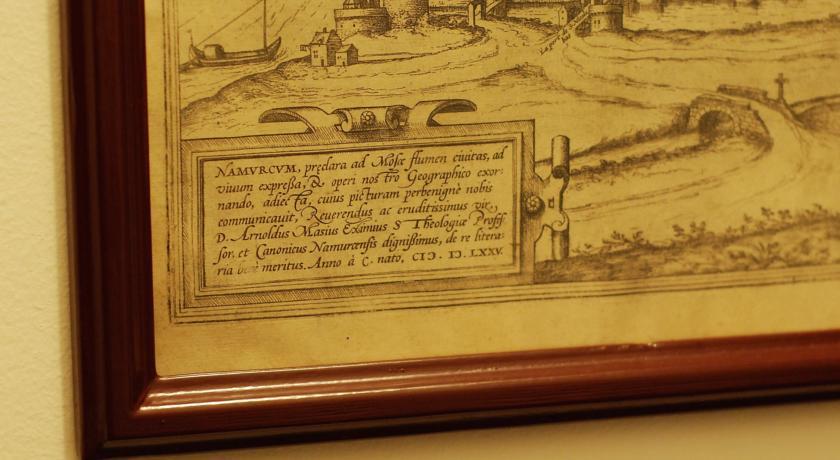 NAMVRCVM, pręclara ad Mosę flumen ciuitas, ad
viuum expreßa, & operi nostro Geographico exor-
nando, adiecta, cuius picturam perbenignè nobis
communicauit, Reuerendus ac eruditissimus vir,
D. Arnoldus Masius Eximius S Theologiæ Profess
sor, et Canonicus Namurcensis dignißimus, de re litera-
ria meritus. Anno à C. nato. CIↃ. IↃ. LXXV.